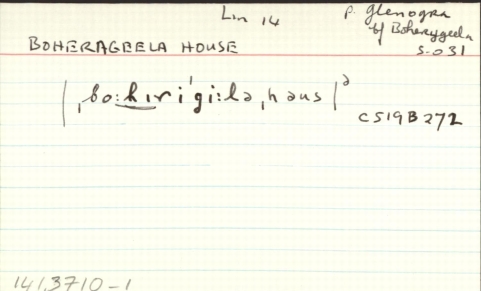 Lin 14
P. Glenogra
tf Boherygeela
S.031
BOHERAGEELA HOUSE
|ˌbo:hɪri'gi:lə ˌhaus|ə
CS19B272
141,3710-1